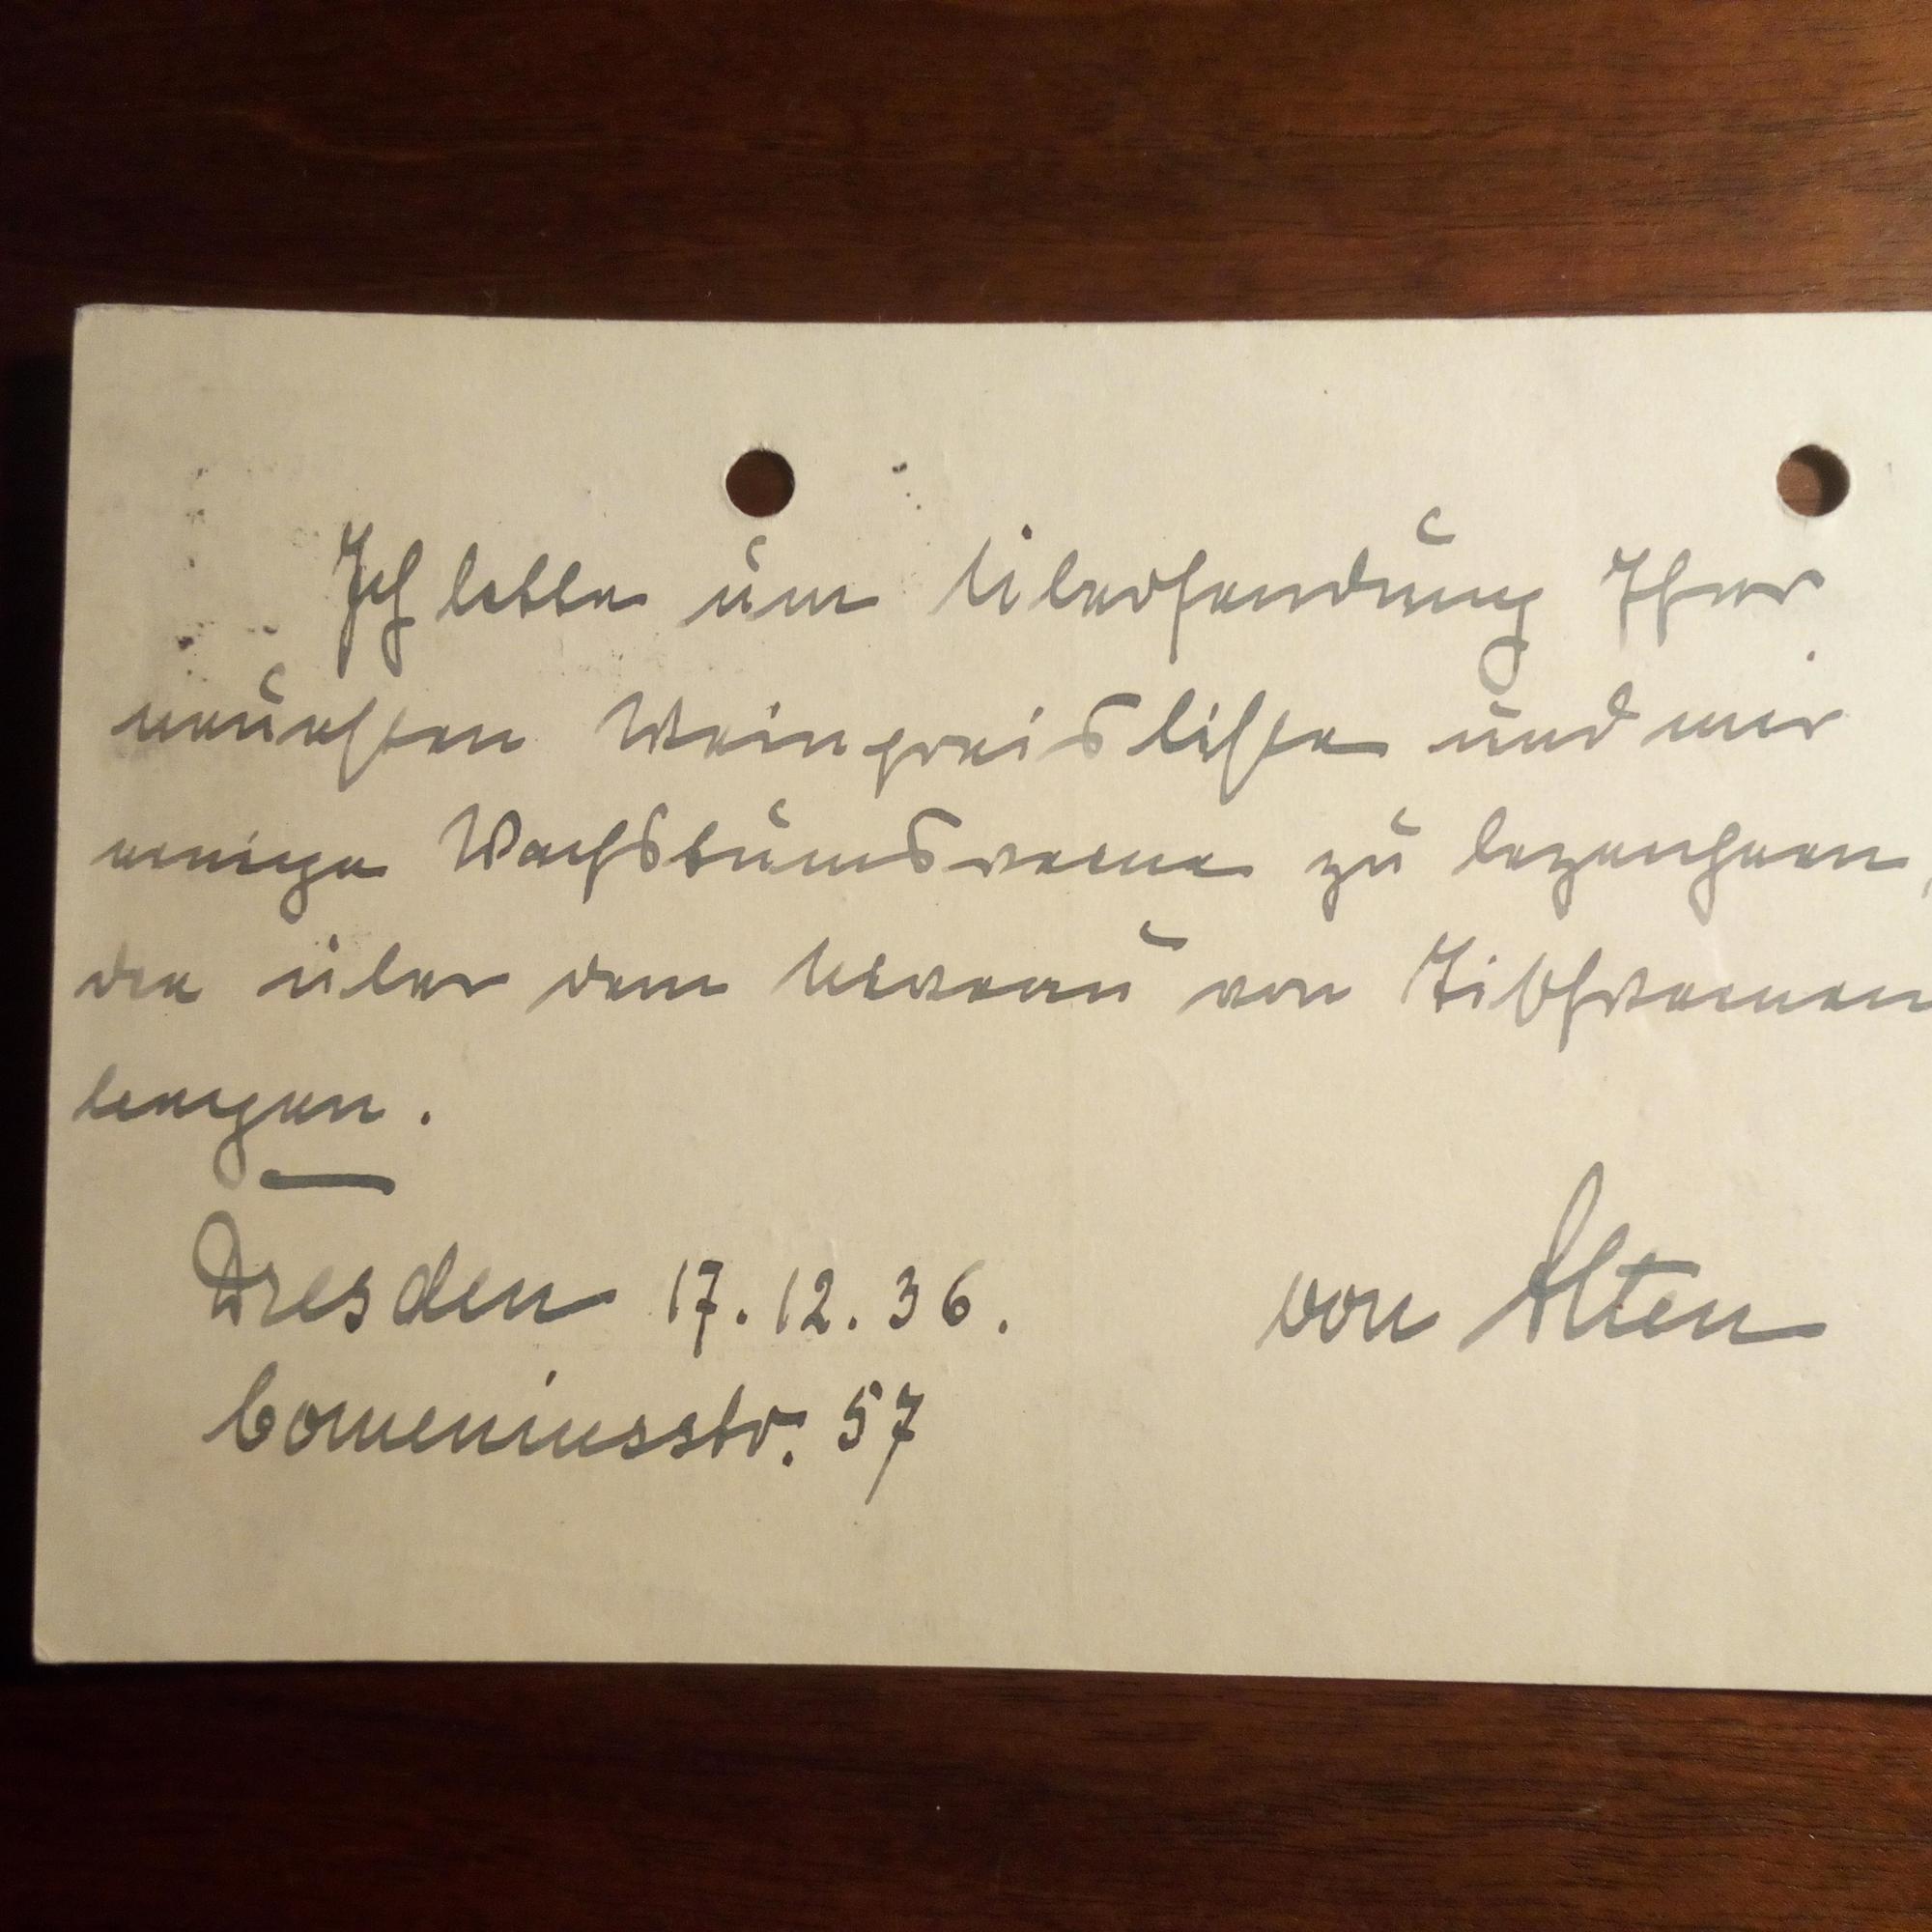 Ich bitte um Übersendung Ihrer
neuesten Weinpreisliste und mir
einige Wachstumsweine zu bezeichnen,
die über dem Niveau von Tischweinen
liegen.
Dresden 17.12.36. von Alten
Comeniusstr. 57